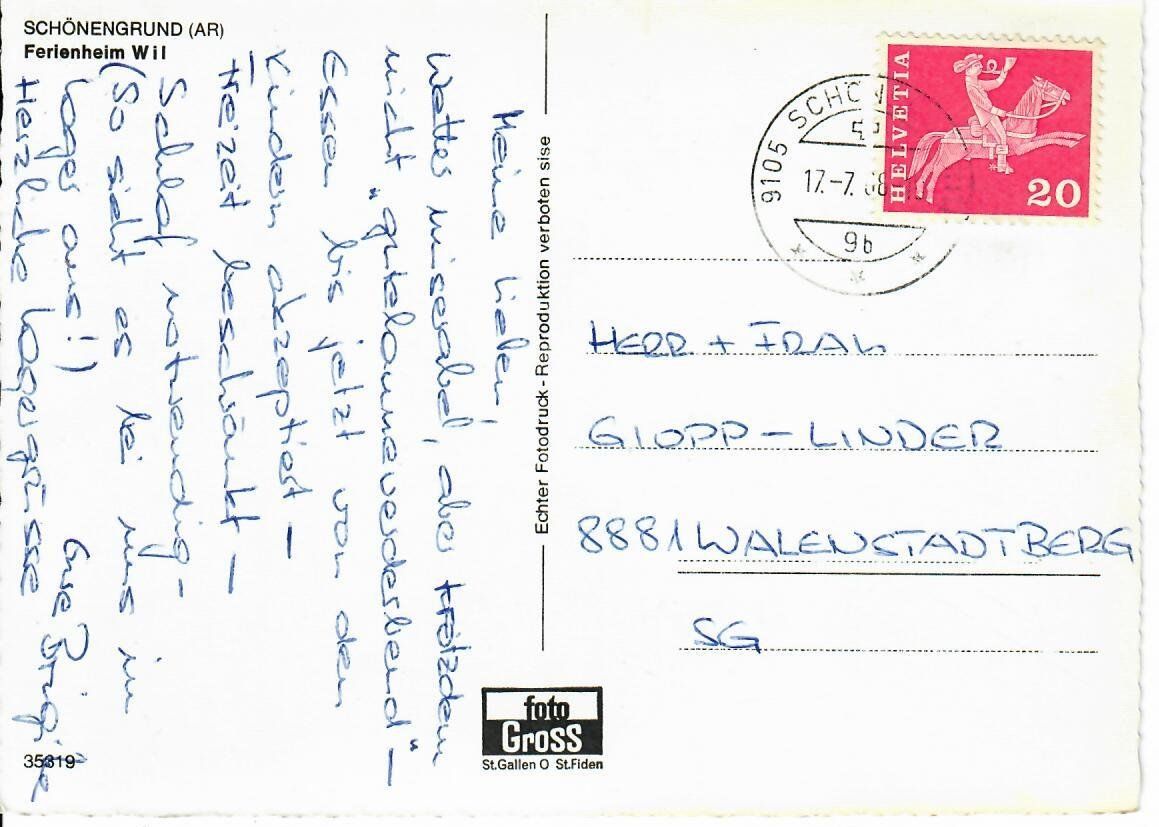 SCHÖNENGRUND (AR)
Ferienheim Wil
Meine Lieben!
Wetter miserabel, aber trotzdem
nicht "gutelauneverderbend" -
Essen bis jetzt von den
Kindern akzeptiert -
Heizeit beschränkt -
Schlaf notwendig -
(So sieht es bei uns im
Lager aus!)
Herzliche Lagergrüsse
Eure Brigitte
35319
Echter Fotodruck - Reproduktion verboten sise
foto
Gross
St.Gallen O St.Fiden
9105 SCHÖ
17.-7. 68
9b
HELVETIA
20
HERR + FRAU
GIOPP - LINDER
8881 WALENSTADTBERG
SG